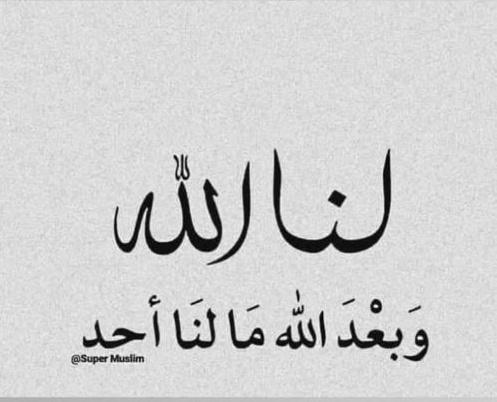 لنا الله
وَبعْدَ الله مَا لنَا أحد
@Super Muslim